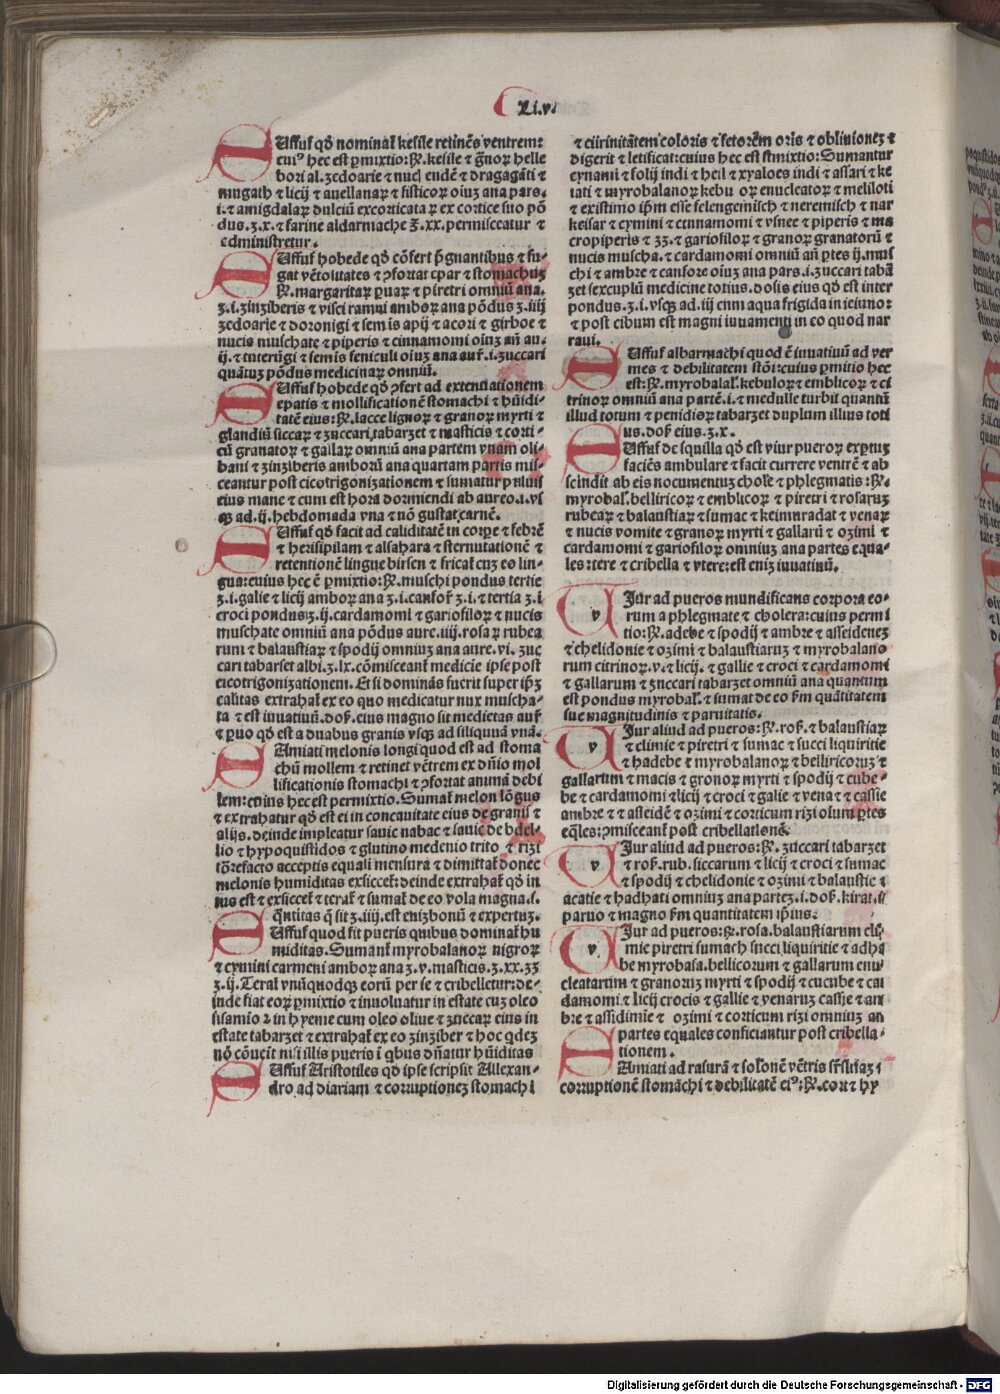 Li.v.
DUffuf qđ nominat kesile retinēs ventrem:
cuiꝰ hec est ꝑmixtio: ℞. kesile ⁊ ḡnoꝝ helle
bori al. zedoarie ⁊ nucl endē ⁊ dragagāti ⁊
mugath ⁊ licij ⁊ auellanaꝝ ⁊ fisticoꝝ oiuꝫ ana pars.
i. ⁊ amigdalaꝝ dulciū excorticata ꝝ ex cortice suo pō
dus.ʒ.x. ⁊ farine aldarmache ℥.xx. permisceatur ⁊
administretur.
DUffuf hobede qđ cōfert p̄gnantibus ⁊ fu-
gat vētositates ⁊ ꝯfortat epar ⁊ stomachuꝫ
℞. margaritaꝝ ꝑuaꝝ ⁊ piretri omniū ana.
ʒ.i. zinziberis ⁊ visci ramni amboꝝ ana pōdus ʒ.iiij
zedoarie ⁊ doronigi ⁊ semīs apij ⁊ acori ⁊ girboe ⁊
nucis muschate ⁊ piperis ⁊ cinnamomi oiuꝫ añ au.
ij. ⁊ inteꝛūgi ⁊ semis feniculi oiuꝫ ana auꝛ.i. zuccari
quātuꝫ pōdus medicinaꝝ omniū.
DUffuf hobede qđ ꝯfert ad extenuationem
epatis ⁊ mollificationē stomachi ⁊ hūidi-
tatē eius: ℞. lacce lignoꝝ ⁊ granoꝝ myrti ⁊
glandiū siccaꝝ ⁊ zuccari tabarzet ⁊ masticis ⁊ corti-
cū granatoꝝ ⁊ gallaꝝ omniū ana partem vnam oli-
bani ⁊ zinziberis amborū ana quartam partis mis-
ceantur post cicotrigonizationem ⁊ sumatur pului
eius mane ⁊ cum est hora dormiendi ab aureo.i. vs
qꝫ ad.ij. hebdomada vna ⁊ nō gustat carnē.
DUffuf qđ facit ad caliditatē in corꝑe ⁊ febrē
⁊ herisipilam ⁊ alsahara ⁊ sternutationē ⁊
retentionē lingue birsen ⁊ fricat cuꝫ eo lin-
gua: cuius hec ē ꝑmixtio: ℞. muschi pondus tertie
ʒ.i. galie ⁊ licij amboꝝ ana ʒ.i. canfoꝛ ʒ.i. ⁊ tertia ʒ.i
croci pondus ʒ.ij. cardamomi ⁊ gariofiloꝝ ⁊ nucis
muschate omniū ana pōdus aure.iiij. rosaꝝ rubea
rum ⁊ balaustiaꝝ ⁊ spodij omniuꝫ ana aure.vi. zuc
cari tabarset albi.ʒ.lx. cōmisceant medicie ipse post
cicotrigonizationem. Et si dominās fuerit super ip̄ꝫ
calitas extrahat ex eo quo medicatur nux muscha-
ta ⁊ est iuuatiuū. dos. eius magno sit medietas auꝛ
⁊ ꝑuo qđ est a duabus granis vsqꝫ ad siliquā vnā.
DAmiati melonis longi quod est ad stoma
chū mollem ⁊ retinet vētrem ex dn̄io mol
lificationis stomachi ⁊ ꝯfortat animā debi
lem: cuius hec est permixtio. Sumat melon lōgus
⁊ extrahatur qđ est ei in concauitate eius de granis ⁊
alijs. deinde impleatur sauic nabac ⁊ sauic de bdel-
lio ⁊ hypoquistidos ⁊ glutino medenio trito ⁊ rizi
torrefacto acceptis equali mensura ⁊ dimittat donec
melonis humiditas exsiccet: deinde extrahat qđ in
tus est ⁊ exsiccet ⁊ terat ⁊ sumat de eo vola magna.s.
q̄ntitas q̄ sit ʒ.iiij. est enizbonū ⁊ expertuꝫ.
DUffuf quod fit pueris quibus dominat hu
miditas. Sumant myrobalanoꝝ nigroꝝ
⁊ cymini carmeni amboꝝ ana ʒ.v. masticis.ʒ.xx.zz
ʒ.ij. Terat vnūquodqꝫ eorū per se ⁊ cribelletur: de-
inde fiat eoꝝ ꝑmixtio ⁊ inuoluatur in estate cuꝫ oleo
sisamio ⁊ in hyeme cum oleo oliue ⁊ zuccaꝝ eius in
estate tabarzet ⁊ extrahat ex eo zinziber ⁊ hoc qdeꝫ
nō cōueit nisi illis pueris ī qbus dn̄atur hūiditas
DUffuf Aristotiles qđ ipse scripsit Allexan-
dro ad diariam ⁊ corruptionez stomachi
⁊ citrinitātem coloris ⁊ fetorēm oris ⁊ obliuionez ⁊
digerit ⁊ letificat: cuius hec est ꝑmixtio: Sumantur
cynami ⁊ folij indi ⁊ heil ⁊ xyaloes indi ⁊ assari ⁊ ke
iati ⁊ myrobalanoꝝ kebu oꝝ enucleatoꝝ ⁊ meliloti
⁊ existimo ip̄m esse felengemisch ⁊ neremisch ⁊ nar
keisar ⁊ cymini ⁊ cinnamomi ⁊ vsnee ⁊ piperis ⁊ ma
cropiperis ⁊ zz. ⁊ gariofiloꝝ ⁊ granoꝝ granatorū ⁊
nucis muscha. ⁊ cardamomi omniū añ ꝑtes ij. mus
chi ⁊ ambre ⁊ canfore oiuꝫ ana pars.i. zuccari tabā
zet sexcuplū medicine totius. dosis eius qđ est inter
pondus.ʒ.i. vsqꝫ ad.ij cum aqua frigida in ieiuno:
⁊ post cibum est magni iuuamenti in eo quod nar
raui.
DUffuf albarmachi quod ē iuuatiuū ad ver
mes ⁊ debilitatem stōi: cuius ꝑmitio hec
est: ℞. myrobalaꝉ. kebuloꝝ ⁊ emblicoꝝ ⁊ ci
trinoꝝ omniū ana partē.i. ⁊ medulle turbit quantū
illud totum ⁊ penidioꝝ tabarzet duplum illius toti
us. dos eius.ʒ.x.
DUffuf de squilla qđ est vsur pueroꝝ exꝑtuꝫ
faciēs ambulare ⁊ facit currere ventrē ⁊ ab
scindit ab eis nocumentuꝫ chole ⁊ phlegmatis: ℞.
myrobaꝉ. belliricoꝝ ⁊ emblicoꝝ ⁊ piretri ⁊ rosaruꝫ
rubeaꝝ ⁊ balaustiaꝝ ⁊ sumac ⁊ keimuradat ⁊ venaꝝ
⁊ nucis vomite ⁊ granoꝝ myrti ⁊ gallarū ⁊ ozimi ⁊
cardamomi ⁊ gariofiloꝝ omniuꝫ ana partes equa-
les: tere ⁊ cribella ⁊ vtere: est eniꝫ iuuatiuū.
AJur ad pueros mundificans corpora eo-
rum a phlegmate ⁊ cholera: cuius permi
tio: ℞. adebe ⁊ spodij ⁊ ambre ⁊ asseidenez
⁊ chelidonie ⁊ ozimi ⁊ balaustiaruꝫ ⁊ myrobalano
rum citrinoꝝ. v. ⁊ licij. ⁊ gallie ⁊ croci ⁊ cardamomi
⁊ gallarum ⁊ zuccari tabarzet omniū ana quantum
est pondus myrobal. ⁊ sumat de eo s̄m quātitatem
sue magnitudinis ⁊ paruitatis.
AJur aliud ad pueros: ℞. ros. ⁊ balaustiaꝝ
⁊ climie ⁊ piretri ⁊ sumac ⁊ succi liquiritie
⁊ hadebe ⁊ myrobalanoꝝ ⁊ belliricoruꝫ ⁊
gallartum ⁊ macis ⁊ gronoꝝ myrti ⁊ spodij ⁊ cube-
be ⁊ cardamomi ⁊ licij ⁊ croci ⁊ galie ⁊ vena ⁊ ⁊ cassie
ambre ⁊ ⁊ asseidē ⁊ ozimi ⁊ corticum rizi oium ꝑtes
eq̄les: ꝯmisceant post cribellationē.
AJur aliud ad pueros: ℞. zuccari tabarzet
⁊ ros. rub. siccarum ⁊ licij ⁊ croci ⁊ sumac
⁊ spodij ⁊ chelidonie ⁊ ozimi ⁊ balaustie ⁊
acatie ⁊ hadhati omniuꝫ ana partez.i. dos. kirat.ii
paruo ⁊ magno s̄m quantitatem ip̄ius.
AJur ad pueros: ℞. rosa. balaustiarum cli-
mie piretri sumach succi liquiritie ⁊ adha
be myrobasa. bellicorum ⁊ gallarum enu
cleatarum ⁊ granoruꝫ myrti ⁊ spodij ⁊ cucube ⁊ car
damomi ⁊ licij crocis ⁊ gallie ⁊ venaruꝫ cassie ⁊ am
bre ⁊ assidimie ⁊ ozimi ⁊ corticum rizi omniuꝫ an
partes equales conficiantur post cribella-
tionem.
DAmiati ad rasurā ⁊ solonē vētris s̄rsūaꝫ ⁊
corruptionē stomāchi ⁊ debilitatē eiꝰ: ℞. cor ⁊ hy
Digitalisierung gefördert durch die Deutsche Forschungsgemeinschaft - DFG